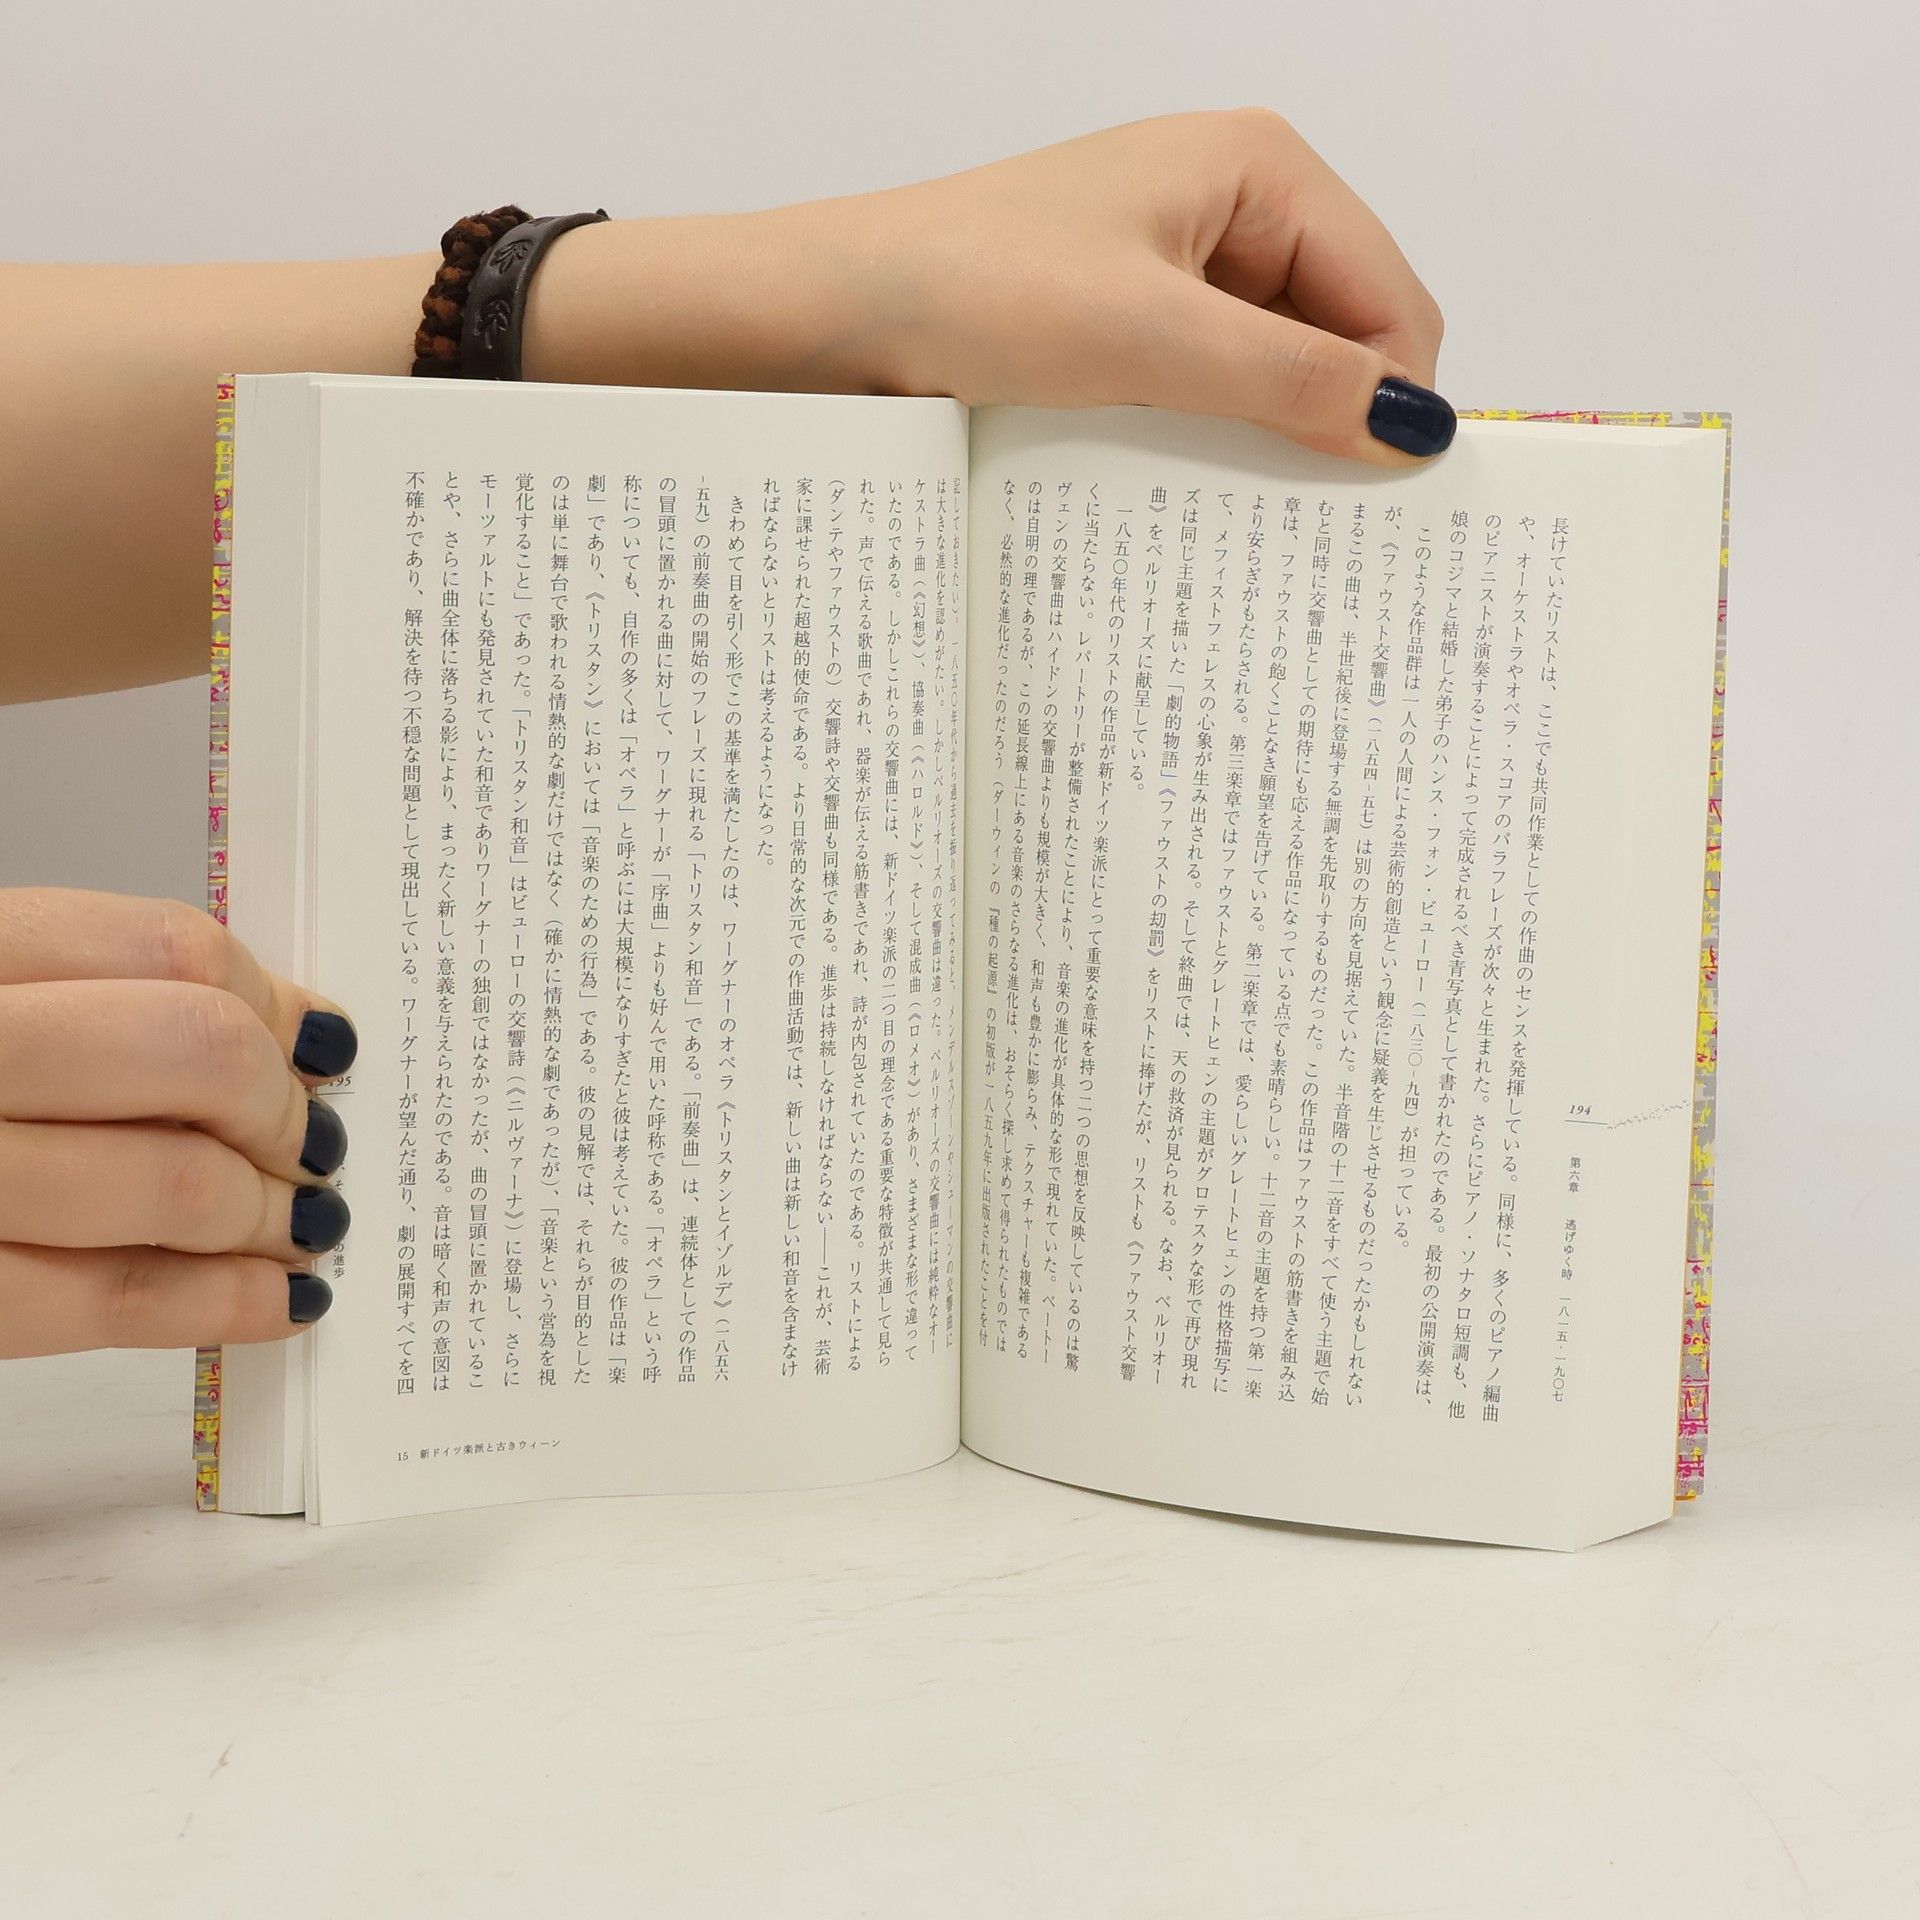 194
第六章　逃げゆく時　一八一五-一九〇七
長けていたリストは、ここでも共同作業としての作曲のセンスを発揮している。同様に、多くのピアノ編曲
や、オーケストラやオペラ・スコアのパラフレーズが次々と生まれた。さらにピアノ・ソナタロ短調も、他
のピアニストが演奏することによって完成されるべき青写真として書かれたのである。最初の公開演奏は、
娘のコジマと結婚した弟子のハンス・フォン・ビューロー（一八三〇-九四）が担っている。
このような作品群は一人の人間による芸術的創造という観念に疑義を生じさせるものだったかもしれない
が、《ファウスト交響曲》（一八五四-五七）は別の方向を見据えていた。半音階の十二音をすべて使う主題で始
まるこの曲は、半世紀後に登場する無調を先取りするものだった。この作品はファウストの筋書きを組み込
むと同時に交響曲としての期待にも応える作品になっている点でも素晴らしい。十二音の主題を持つ第一楽
章は、ファウストの飽くことなき願望を告げている。第二楽章では、愛らしいグレートヒェンの性格描写に
より安らぎがもたらされる。第三楽章ではファウストとグレートヒェンの主題がグロテスクな形で再び現れ
て、メフィストフェレスの心象が生み出される。そして終曲では、天の救済が見られる。なお、ベルリオー
ズは同じ主題を描いた「劇的物語」《ファウストの劫罰》をリストに捧げたが、リストも《ファウスト交響
曲》をベルリオーズに献呈している。
一八五〇年代のリストの作品が新ドイツ楽派にとって重要な意味を持つ二つの思想を反映しているのは驚
くに当たらない。レパートリーが整備されたことにより、音楽の進化が具体的な形で現れていた。ベートー
ヴェンの交響曲はハイドンの交響曲よりも規模が大きく、和声も豊かに膨らみ、テクスチャーも複雑である
のは自明の理であるが、この延長線上にある音楽のさらなる進化は、おそらく探し求めて得られたものでは
なく、必然的な進化だったのだろう（ダーウィンの『種の起源』の初版が一八五九年に出版されたことを付
記しておきたい）。一八五〇年代から過去を振り返ってみると、メンデルスゾーンやシューマンの交響曲に
は大きな進化を認めがたい。しかしベルリオーズの交響曲は違った。ベルリオーズの交響曲には純粋なオー
ケストラ曲（《幻想》）、協奏曲（《ハロルド》）、そして混成曲（《ロメオ》）があり、さまざまな形で違って
いたのである。しかしこれらの交響曲には、新ドイツ楽派の二つ目の理念である重要な特徴が共通して見ら
れた。声で伝える歌曲であれ、器楽が伝える筋書きであれ、詩が内包されていたのである。リストによる
（ダンテやファウストの）交響詩や交響曲も同様である。進歩は持続しなければならない――これが、芸術
家に課せられた超越的使命である。より日常的な次元での作曲活動では、新しい曲は新しい和音を含まなけ
ればならないとリストは考えるようになった。
きわめて目を引く形でこの基準を満たしたのは、ワーグナーのオペラ《トリスタンとイゾルデ》（一八五六
-五九）の前奏曲の開始のフレーズに現れる「トリスタン和音」である。「前奏曲」は、連続体としての作品
の冒頭に置かれる曲に対して、ワーグナーが「序曲」よりも好んで用いた呼称である。「オペラ」という呼
称についても、自作の多くは「オペラ」と呼ぶには大規模になりすぎたと彼は考えていた。彼の作品は「楽
劇」であり、《トリスタン》においては「音楽のための行為」である。彼の見解では、それらが目的とした
のは単に舞台で歌われる情熱的な劇だけではなく（確かに情熱的な劇であったが）、「音楽という営為を視
覚化すること」であった。「トリスタン和音」はビューローの交響詩（《ニルヴァーナ》）に登場し、さらに
モーツァルトにも発見されていた和音でありワーグナーの独創ではなかったが、曲の冒頭に置かれているこ
とや、さらに曲全体に落ちる影により、まったく新しい意義を与えられたのである。音は暗く和声の意図は
不確かであり、解決を待つ不穏な問題として現出している。ワーグナーが望んだ通り、劇の展開すべてを四
15　新ドイツ楽派と古きウィーン
195
の進歩